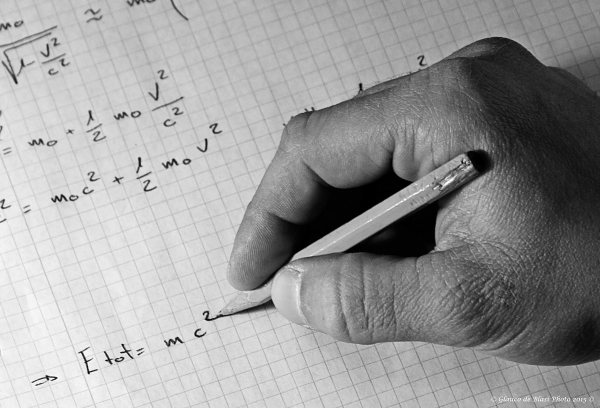 m₀ / √(1 - v²/c²) ≈ m₀ (
= m₀ + 1/2 m₀ v²/c²
² = m₀c² + 1/2 m₀ v²
⇒ E tot = m c²
© Glauco de Blasi Photo 2015 ©